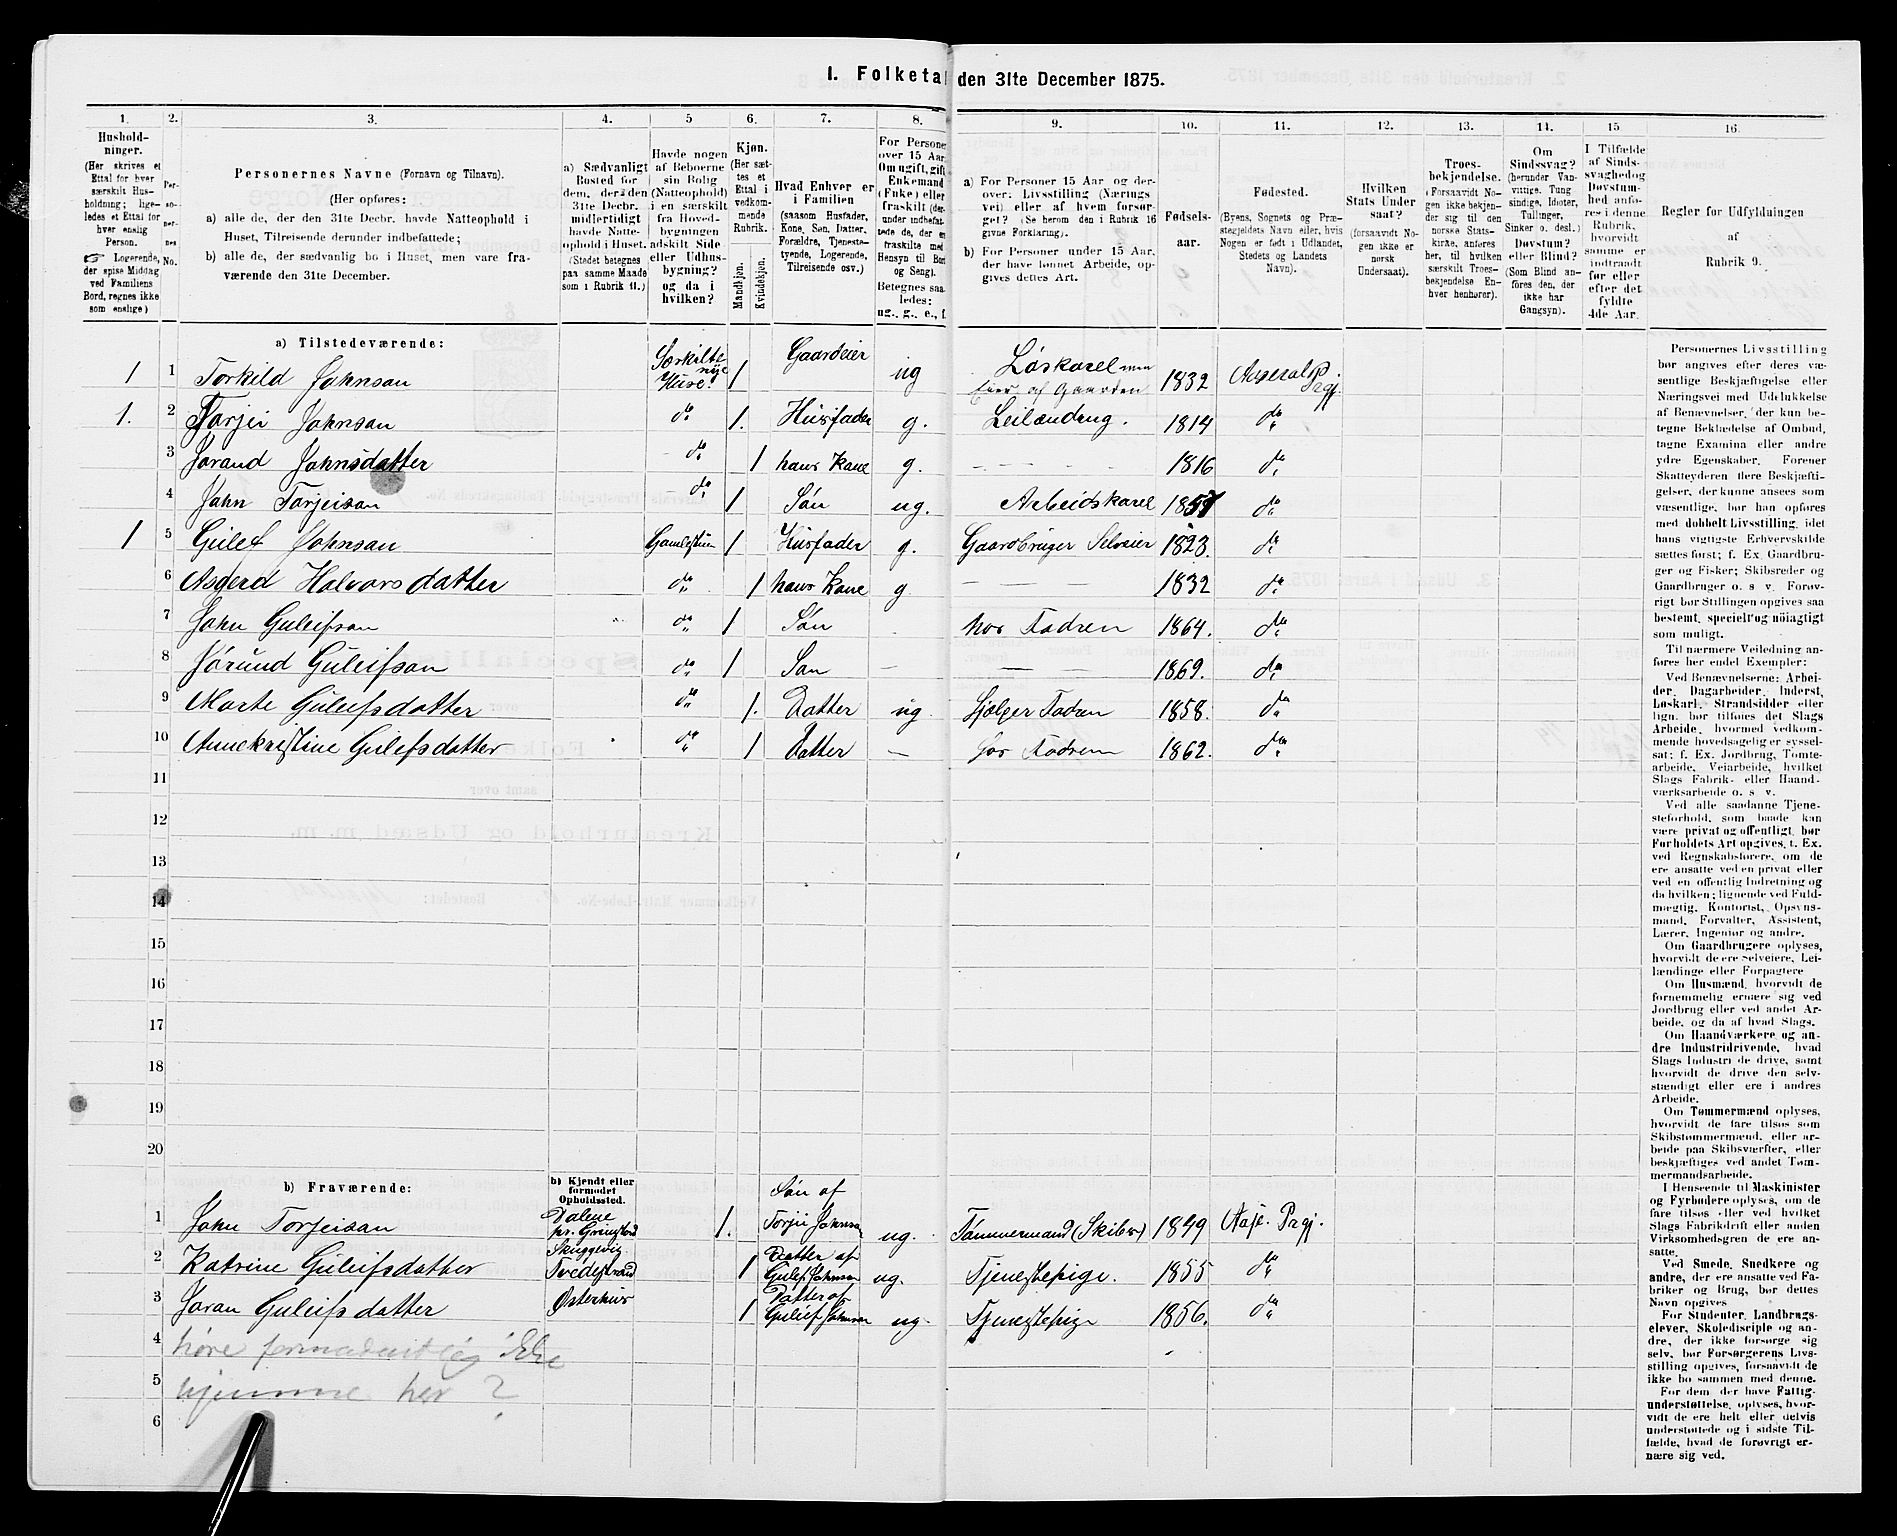 I. Folketal den 31te December 1875.
1. 2. 3. 4. 5 6. 7. 8. 9. 10. 11. 12. 13. 14. 15 16.
Hushold-
ninger.
(Her skrives et
Ettal for hver
særskilt Hus-
holdning; lige-
ledes et Ettal for
hver enslig
Person.
☞ Logerende,
der spise Middag
ved Familiens
Bord, regnes ikke
som enslige)
Per-
so-
ner-
nes
No.
Personernes Navne (Fornavn og Tilnavn).
(Her opføres:
a) alle de, der den 31te Decbr. havde Natteophold i
Huset, Tilreisende derunder indbefattede;
b) alle de, der sædvanlig bo i Huset, men vare fra-
værende den 31te December.
a) Sædvanligt
Bosted for
dem, der den
31te Decbr.
midlertidigt
havde Natte-
ophold i Huset.
(Stedet betegnes
paa samme Maade
som i Rubrik 11.)
Havde nogen
af Beboerne
sin Bolig
(Natteophold)
i en særskilt
fra Hoved-
bygningen
adskilt Side-
eller Udhus-
bygning?
og da i
hvilken?
Kjøn.
(Her sæt-
tes et
Ettal i
vedkom-
mende
Rubrik.
Mandkjøn.
Kvindekjøn.
Hvad Enhver er
i Familien
(saasom Husfader,
Kone, Søn, Datter,
Forældre, Tjeneste-
tyende, Logerende,
Tilreisende osv.)
For Personer
over 15 Aar.
Om ugift, gift
Enkemand
(Enke) eller
fraskilt (der-
under indbefat-
tede de, der er
fraskilte med
Hensyn til Bord
og Seng).
Betegnes saa-
ledes:
ug., g., e., f.
a) For Personer 15 Aar og der-
over: Livsstilling (Nærings
vei) eller af hvem forsør-
get? (Se herom den i Rubrik 16
givne Forklaring).
b) For Personer under 15 Aar,
der have lønnet Arbeide, op-
gives dettes Art.
Fødsels-
aar.
Fødested.
(Byens, Sognets og Præ-
stegjeldets Navn eller, hvis
Nogen er født i Udlandet,
Stedets og Landets
Navn).
Hvilken
Stats Under
saat?
(forsaavidt No-
gen ikke er
norsk
Undersaat).
Troes-
bekjendelse.
(Forsaavidt No-
gen ikke bekjen-
der sig til den
norske Stats-
kirke, anføres
her, til hvilken
særskilt Troes-
bekjendelse En-
hver henhører).
Om
Sindssvag?
(herunder Van-
vittige, Tung
sindige, Idioter,
Tullinger,
Sinker o. desl.)
Døvstum?
eller Blind?
(Som Blind an-
føres den, der
ikke har
Gangsyn).
I Tilfælde
af Sinds-
svaghed og
Døvstum-
hed anfø-
res i denne
Rubrik,
hvorvidt
samme er
indtraadt
før eller
efter det
fyldte
4de Aar.
Regler for Udfyldningen
af
Rubrik 9.
a) Tilstedeværende:
1 1 Torkild Johnsan Særkilte nye Huse 1 Gaardeier ug Løskarel men Eier af Gaarden 1832 Prgj.
1. 2 Torjei Johnsan do 1. Husfader g. Leilænding. 1814 do
3 Jorand Johnsdatter do 1 hans Kone g. 1816 do
4 John Torjeisan do 1 Søn ug. Arbeidskarel do
1 5 Gulef Johnsan 1 Husfader g. Gaardbruger Selveier 1823. do
6 Asgerd Halvorsdatter do 1 hans Kone g 1832 do
7 John Guleifson do 1 Søn hos Fadren 1864. do
8 Jørund Guleifsan do 1 Søn 1869. do
9 Marte Guleifsdatter do 1. Datter ug. hjelper Fadren 1858. do
10 Annekristine Gulefsdatter do 1 Datter hos Fadren 1862. do
11
12
13
14
15
16
17
18
19
20
b) Fraværende:
b) Kjendt eller
formodet
Opholdssted.
1 John Torjeisan Dalene pr. Grimstad 1. Søn af Torjei Johnsan ug. Tømmermand (Skibs) 1849 Prgj.
2 Katrine Guleifsdatter Skuggevig Tvedestrand 1 Datter af Gulef Johnsan ug. Tjenestepige. 1855 do
3 Joran Guleifsdatter Østerhus 1 Datter af Guleif Johnsan ug. Tjenestepige 1856. do
4 høre formodentlig ikke
5 hjemme her?
6
Personernes Livsstilling
bør angives efter deres væ-
sentlige Beskjæftigelse eller
Næringsvei med Udelukkelse
af Benævnelser, der kun be-
tegne Beklædelse af Ombud,
tagne Examina eller andre
ydre Egenskaber. Forener
Skatteyderen flere Beskjæfti-
gelser, der kunne ansees som
væsentlige, bør han opføres
med dobbelt Livsstilling, idet
hans vigtigste Erhvervskilde
sættes først; f. Ex. Gaardbru-
ger og Fisker; Skibsreder og
Gaardbruger o. s. v. Forøv-
rigt bør Stillingen opgives saa
bestemt, specielt og nøiagtigt
som muligt.
Til nærmere Veiledning an-
føres her endel Exempler:
Ved Benævnelserne: Arbei-
der, Dagarbeider, Inderst,
Løskarl, Strandsidder eller
lign. bør tilføies det Slags
Arbeide, hvormed vedkom-
mende hovedsagelig er syssel-
sat; f. Ex. Jordbrug, Tomte-
arbeide, Veiarbeide, hvilket
Slags Fabrik- eller Haand-
værksarbeide o. s. v.
Ved alle saadanne Tjene-
steforhold, som baade kan
være privat og offentligt, bør
Forholdets Art opgives, t. Ex.
ved Regnskabsførere, om de
ere ansatte ved en privat eller
ved en offentlig Indretning og
da hvilken; lignende ved Fuld-
mægtig, Kontorist, Opsyns-
mand, Forvalter, Assistent,
Lærer, Ingeniør og andre.
Om Gaardbrugere oplyses,
hvorvidt de ere Selveiere, Lei-
lændinge eller Forpagtere
Om Husmænd, hvorvidt de
fornemmelig ernære sig ved
Jordbrug eller ved andet Ar-
beide, og da af hvad Slags.
Om Haandværkere og an-
dre Industridrivende, hvad
Slags Industri de drive, samt
hvorvidt de drive den selv-
stændigt eller ere i andres
Arbeide.
Om Tømmermænd oplyses,
hvorvidt de fare tilsøs som
Skibstømmermænd, eller ar-
beide paa Skibsværfter, eller
beskjæftiges ved andet Tøm-
mermandsarbeide.
I Henseende til Maskinister
og Fyrbødere oplyses, om de
fare tilsøs eller ved hvilket
Slags Fabrikdrift eller anden
Virksomhedsgren de ere an-
satte.
Ved Smede, Snedkere og
andre, der ere ansatte ved Fa-
briker og Brug, bør dettes
Navn opgives
For Studenter, Landbrugs-
elever, Skoledisciple og an-
dre, der ikke forsørge sig
selv, bør Forsørgerens Livs-
stilling opgives, forsaavidt de
ikke bo sammen med denne.
For dem, der have Fattig-
understøttelse, oplyses, hvor-
vidt de ere helt eller delvis
understøttede og i sidste Til-
fælde, hvad de forøvrigt er-
nære sig ved.